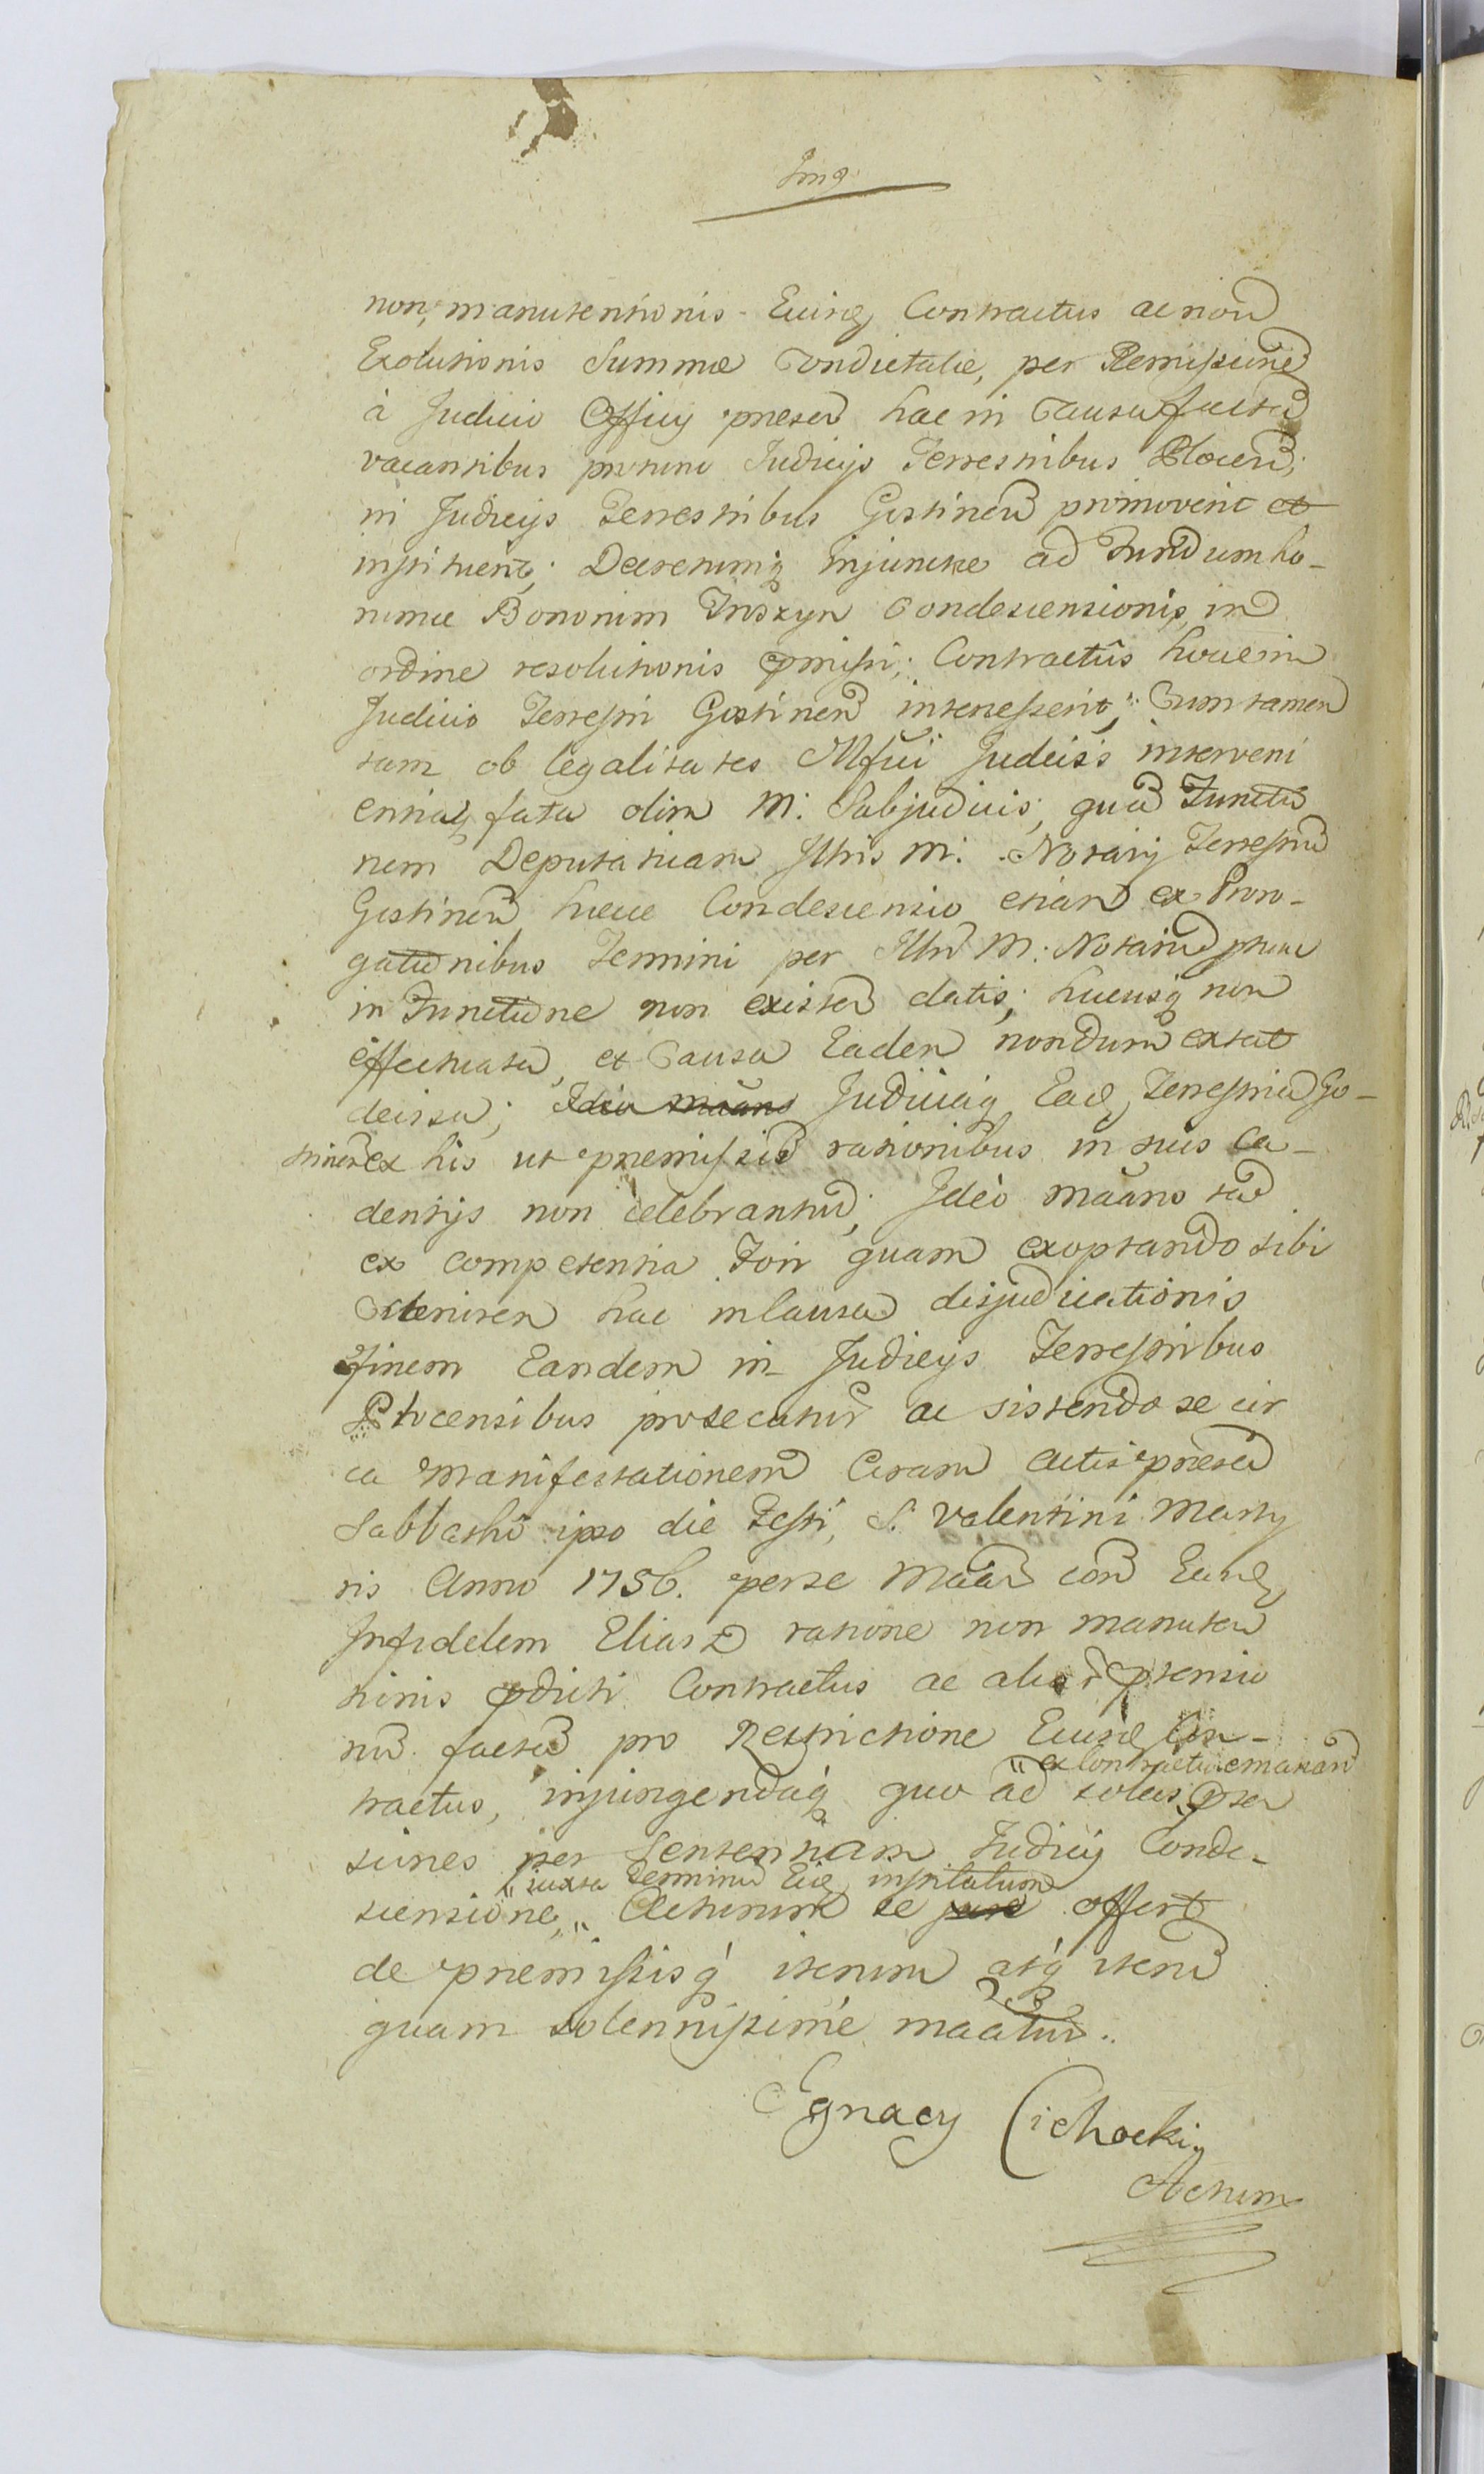 non manutentionis Eiusq Contractus ac non
Exolutionis Summæ Condictatæ, per Remissione
à Judicio Officij præsen hac in Causa factā
vacantibus pronunc Judicijs Terrestribus Plocen;
in Judicijs Terrestribus Gostinen promoverit et
instituerit; Decretumq injunctæ ad Fundum ho-
rumce Bonorum Condescensionis in
ordine resolutionis pmissi; Contractûs hocce in
Judicio Terrestri Gostinen Cum tamen
tam ob legalitates Mfci Judicis interveni
entiaq fata olim M: Subjudicis, quā Functio
nem Deputativam Illris M: Notarij Terrestris
Gostinen hæcce Condescensio etiam ex Proro-
gationibus Termini per Illrē M: Notariū
in Functione non existen datis, hucusq non
effectuata, et Causa Eadem nondum extat
decisa; Ideo mãans Judiciaq Eadē Terrestria Go-
stinen ex his ut præmissis rationibus in suis Ca-
dentijs non celebrantur; Ideò mãans tam
ex competentia Fori quam exoptando sibi
hac in Causa disjudicationis
finem Eandem in Judicijs Terrestribus
Plocensibus prosecutur ac sistendo se cir
ca Manifestationem Coram Actis præsen
Sabbatho ipso die Festi, S. Valentini Marty
ris Anno 1756. per se Mãan con Eund,
Infidelem Eliasz ratione non manuten
tionis pdicti Contractus ac aliar prtensio
nū factā pro Restrictione Eiusd Con-
" ex Contractu emanan
tractus, injungendaq quo ad prten
siones per Sententiam Judicij Conde-
" iuxta Terminū Eiq institutum
scensione," Acturum se jure offert
de præmissisq iterum atq iterū
quam solennissimè mãatur..
Ignacy Cichocki
Actum